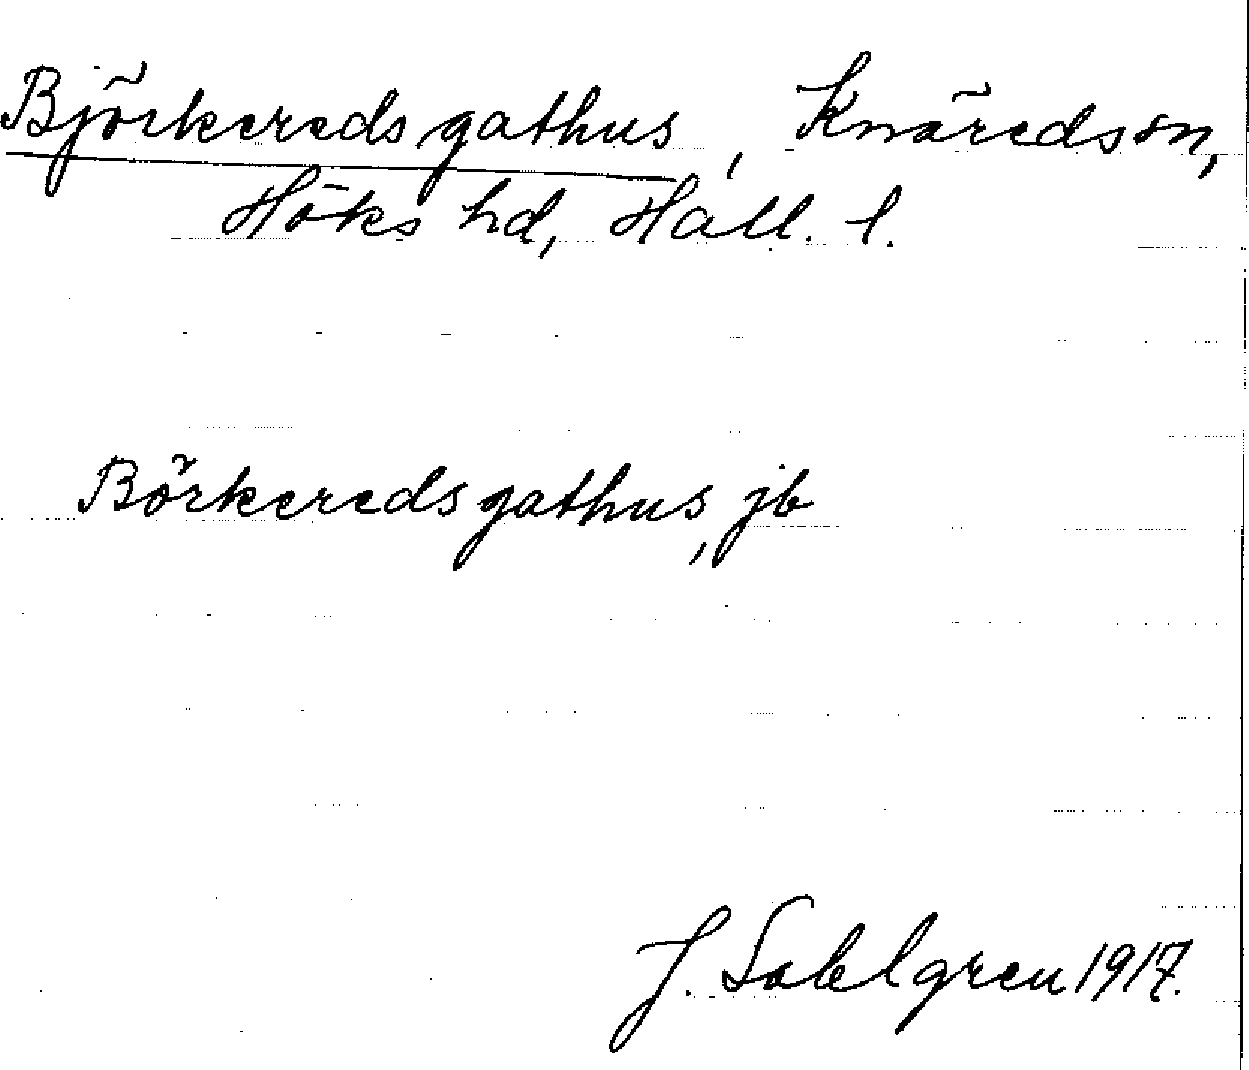 Björkereds gathus, Knäred sn,
Höks hd, Hall. l.
Börkereds gathus, jb
J. Sahlgren 1917.